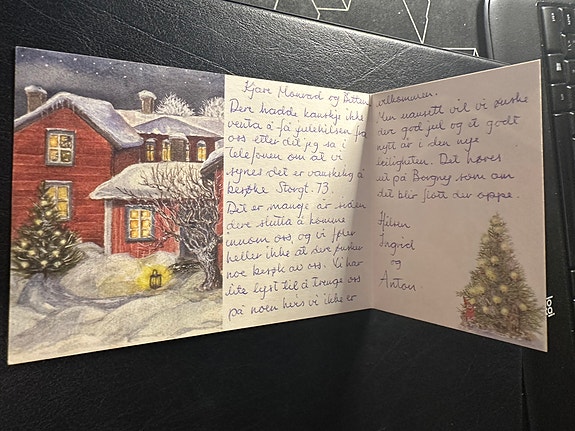 Kjære Monrad og Bitten
Dere hadde kanskje ikke
venta å få julehilsen fra
oss etter det jeg sa i
Telefonen om at vi
synes det er vanskelig å
besøke Storgt. 73.
Det er mange år siden
dere slutta å komme
innom oss, og vi føler
heller ikke at dere ønsker
noe besøk av oss. Vi har
lite lyst til å trenge oss
på noen hvis vi ikke er
velkommen.
Men uansett vil vi ønske
dere god jul og et godt
nytt år i den nye
leiligheten. Det høres
ut på Borgny som om
det blir flott der oppe.
Hilsen
Ingrid
og
Anton
logi